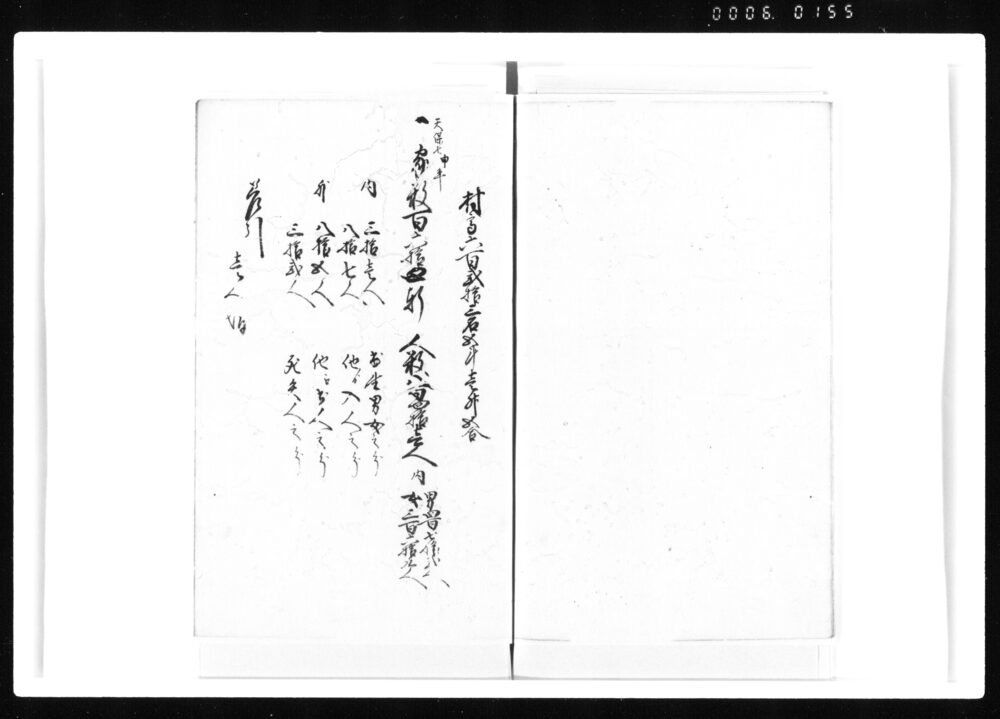 0006. 0155
村高六百弐拾三石四斗壱升四合
天保七申年
一 家数百六拾四軒 人数八百拾壱人 内
男四百七拾八人
女三百三拾三人
内 三拾壱人 出生男女之分
八拾七人 他より入人之分
外 八拾四人 他江出人之分
三拾弐人 死失人之分
差引 壱人 増